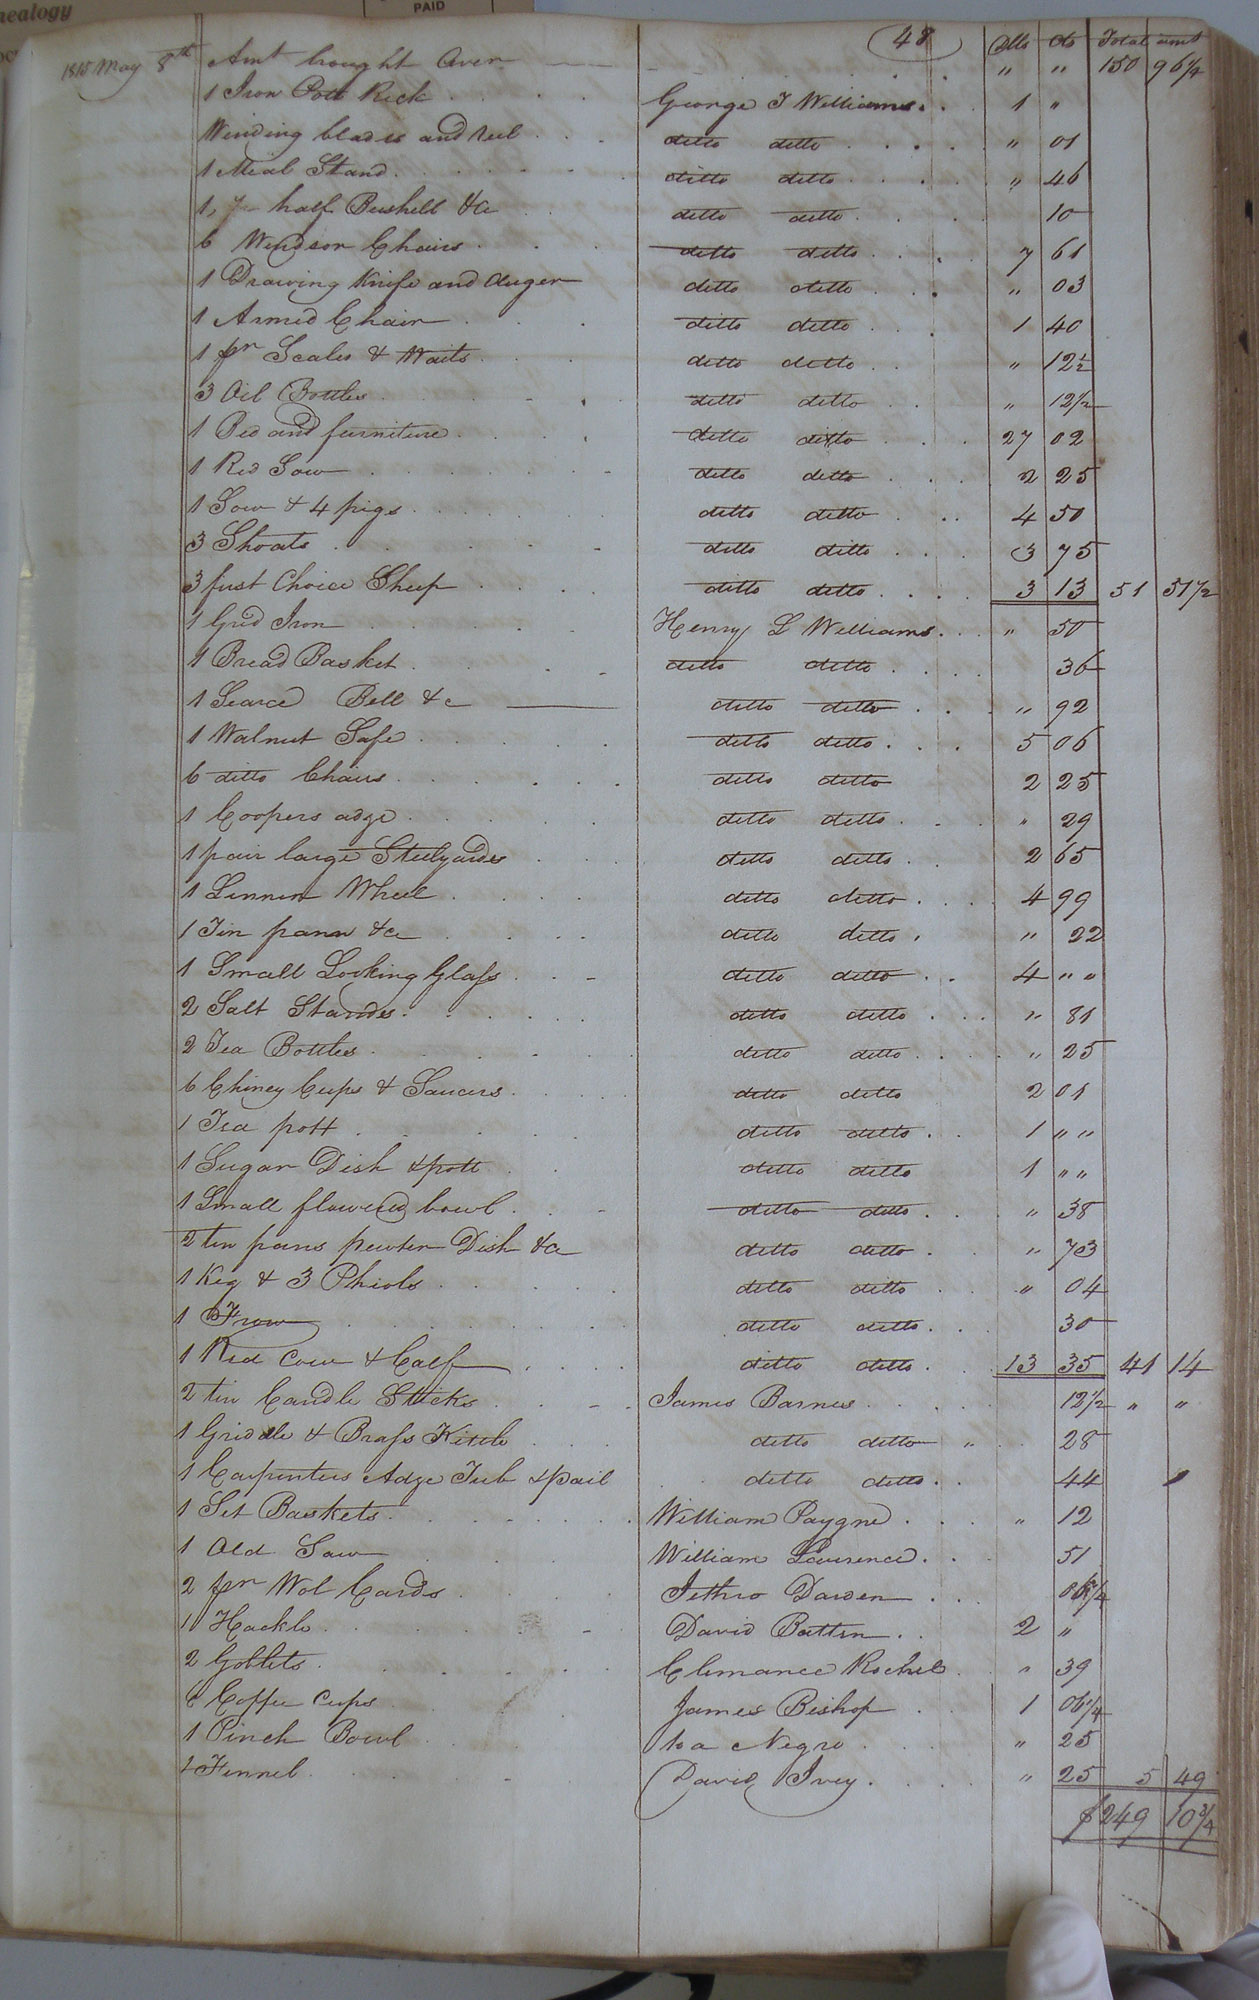 nealogy
PAID
48 Dlls Cts Total amt
1815 May 8th Amt brought Over " " 150 96 1/4
1 Iron Pott Rick George J Williams 1 "
Winding blades and reel ditto ditto " 01
1 Meal Stand ditto ditto " 46
1, half Bushell &c ditto ditto 10
6 Windsor Chairs ditto ditto 7 61
1 Drawing Knife and Auger ditto ditto " 03
1 Armed Chair ditto ditto 1 40
1 pr Scales & Waits ditto ditto " 12 1/2
3 Oil Bottles ditto ditto " 12 1/2
1 Bed and furniture ditto ditto 27 02
1 Red Sow ditto ditto 2 25
1 Sow & 4 pigs ditto ditto 4 50
3 Shoats ditto ditto 3 75
3 furst Choice Sheep ditto ditto 3 13 51 51 1/2
1 Grid Iron Henry L Williams " 50
1 Bread Basket ditto ditto 36
1 Searce Bell &c ditto ditto " 92
1 Walnut Safe ditto ditto 5 06
6 ditto Chairs ditto ditto 2 25
1 Coopers adze ditto ditto " 29
1 pair large Steelyardes ditto ditto 2 65
1 Linnen Wheel ditto ditto 4 99
1 Tin pann &c ditto ditto " 22
1 Small Looking Glass ditto ditto 4 " "
2 Salt Standes ditto ditto " 81
2 Tea Bottles ditto ditto " 25
6 Chiney Cups & Saucers ditto ditto 2 01
1 Tea pott ditto ditto 1 " "
1 Sugar Dish & pott ditto ditto 1 " "
1 Small flowered bowl ditto ditto " 38
2 tin pans pewter Dish &c ditto ditto " 73
1 Keg & 3 Phiols ditto ditto " 04
1 Frow ditto ditto 30
1 Red Cow & Calf ditto ditto 13 35 41 14
2 tin Candle Sticks James Barnes 12 1/2 " "
1 Griddle & Brass Kittle ditto ditto " 28
1 Carpenters Adze Tub & pail ditto ditto 44
1 Set Baskets William Paygne " 12
1 Old Saw William Lawrence 51
2 pr Wol Cards Jethro Darden
1 Hackle David Batten 2 "
2 Goblets Clemance Rochel " 39
6 Coffee Cups James Bishop 1 06 1/4
1 Pinch Bowl to a Negro " 25
1 Funnel David Ivey " 25 5 49
$249 10 3/4